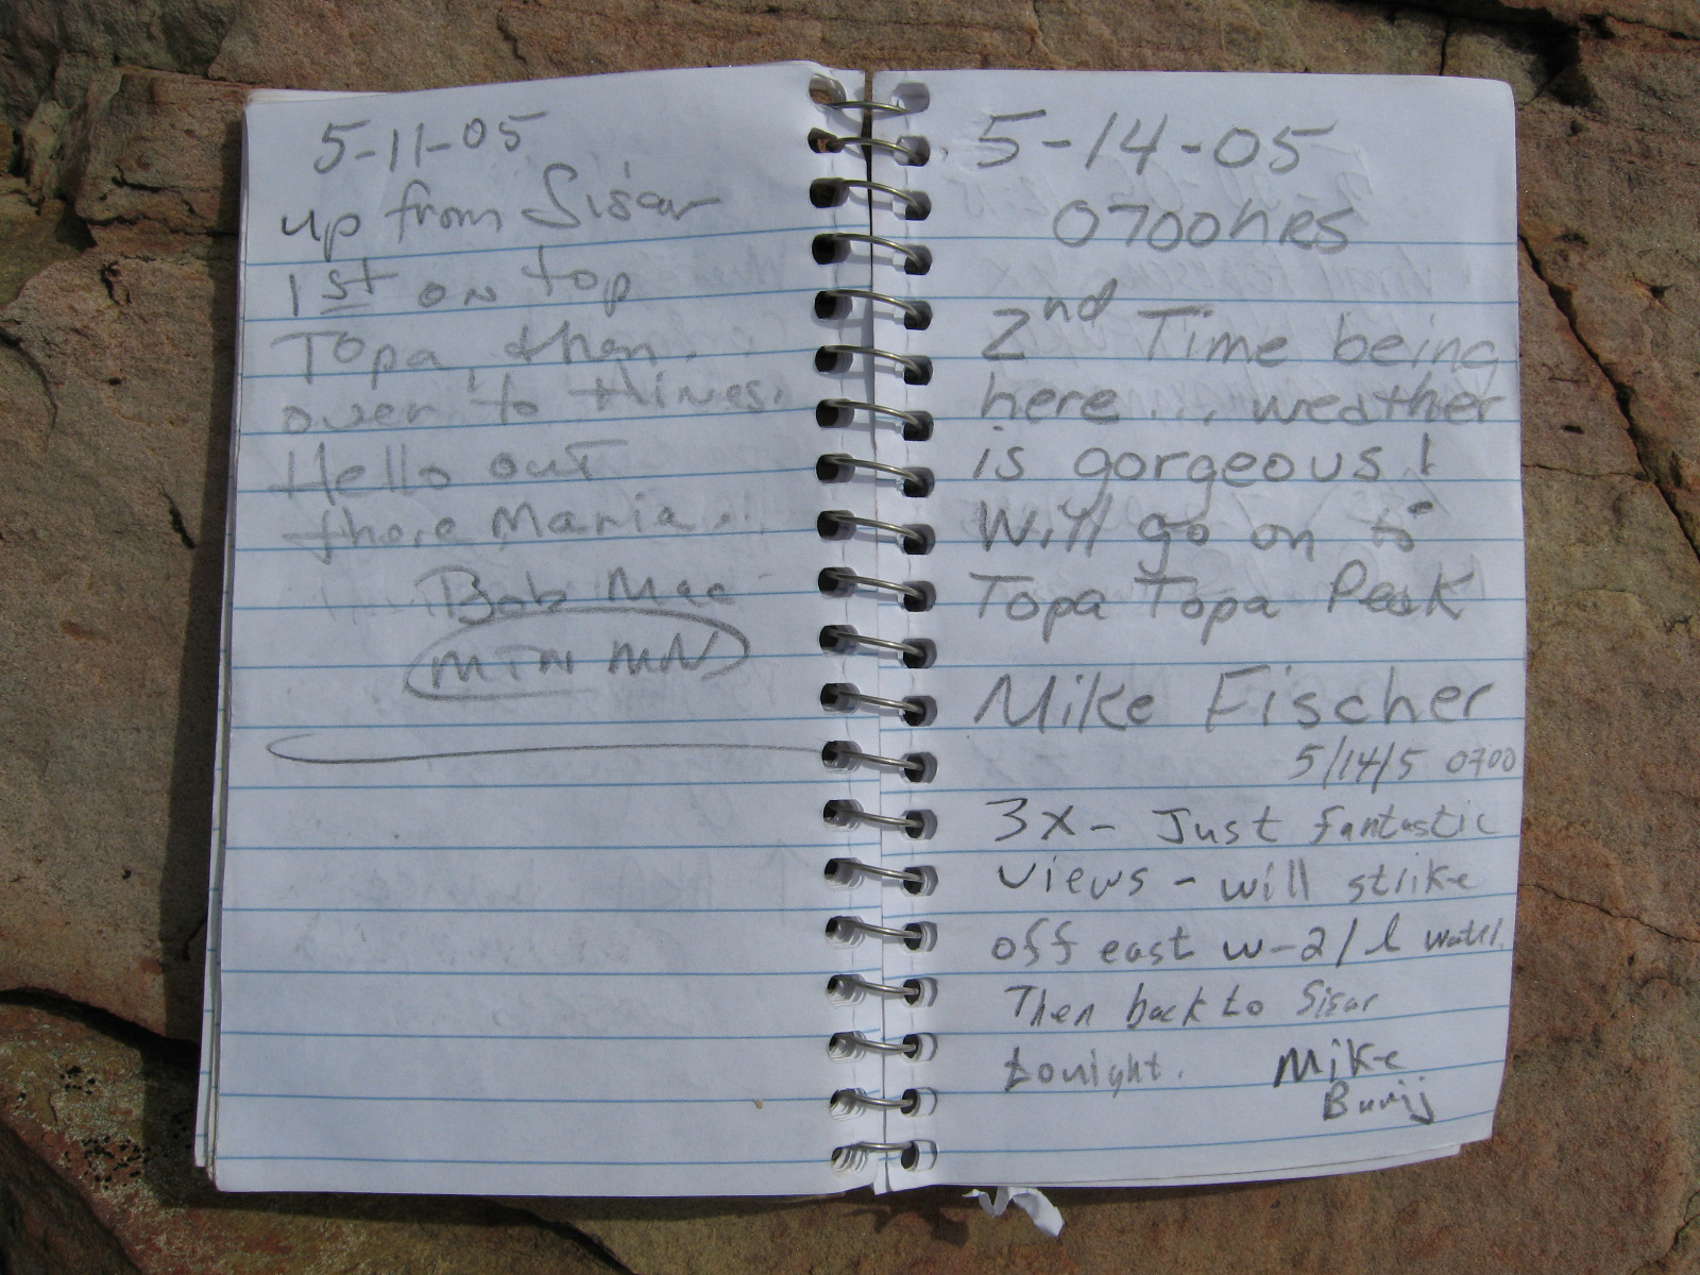 5-11-05
up from Sisar
1st on top
Topa, then
over to thines.
Hello out
there Maria..
Bob Mac
MTN MN
5-14-05
0700hrs
2nd Time being
here... weather
is gorgeous!
Will go on to
Topa Topa Peak
Mike Fischer
5/14/5 0700
3x - Just fantastic
views - will strike
off east w-2/l
Then back to Sisar
tonight. Mike